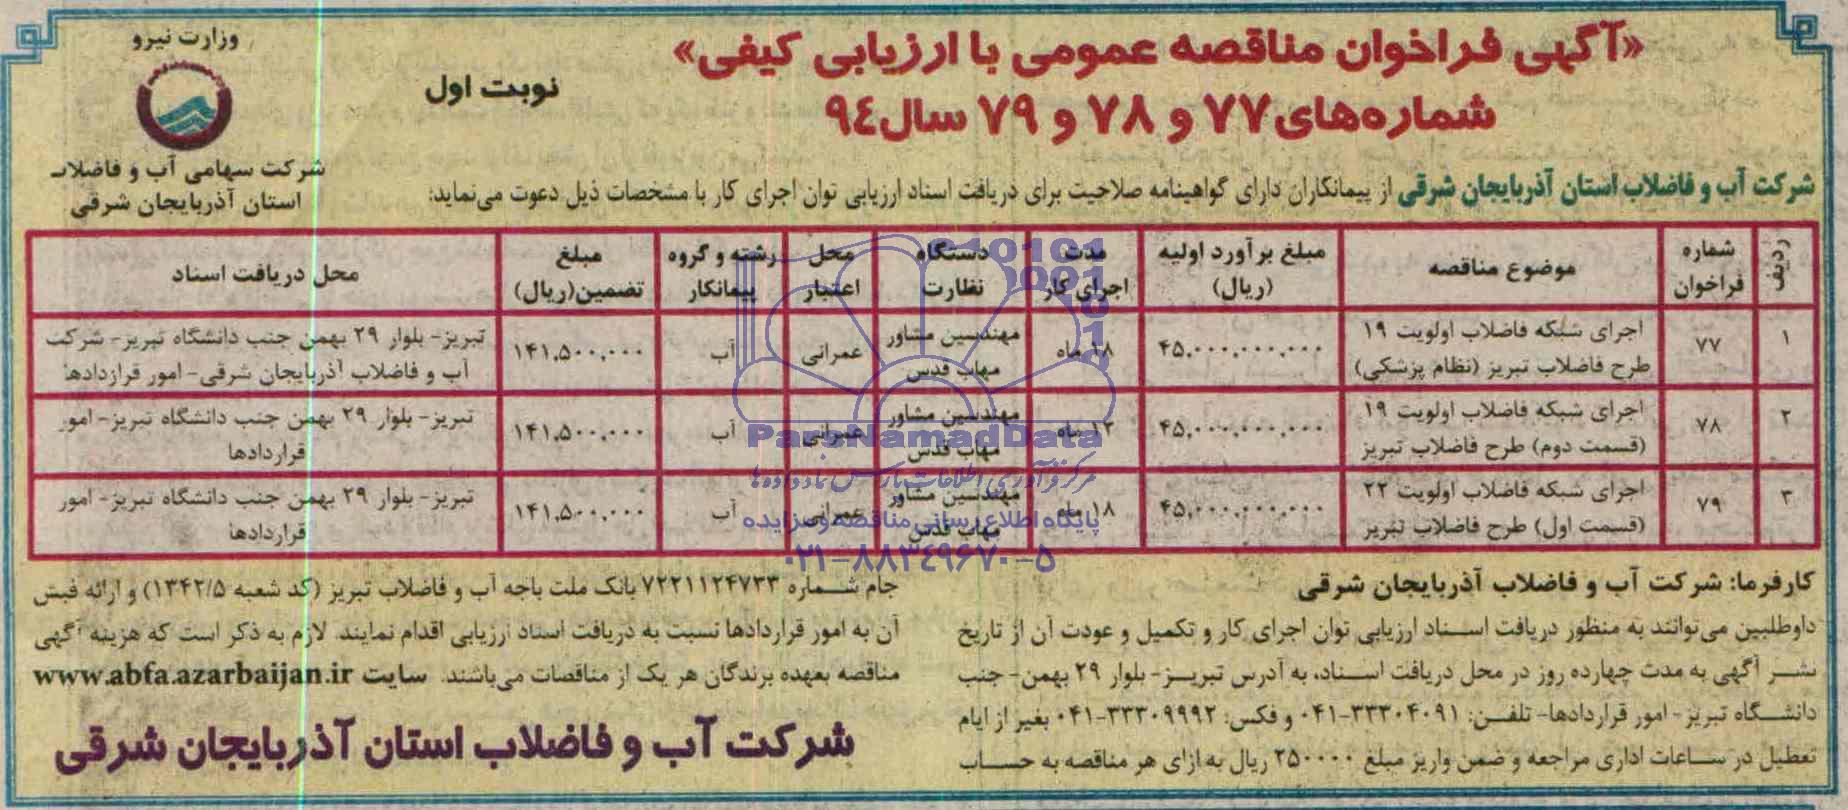 «آگهی فراخوان مناقصه عمومی با ارزیابی کیفی»
شماره‌های ۷۷ و ۷۸ و ۷۹ سال ۹۴
نوبت اول
وزارت نیرو
شرکت سهامی آب و فاضلاب
استان آذربایجان شرقی
شرکت آب و فاضلاب استان آذربایجان شرقی از پیمانکاران دارای گواهینامه صلاحیت برای دریافت اسناد ارزیابی توان اجرای کار با مشخصات ذیل دعوت می‌نماید:
ردیف | شماره فراخوان | موضوع مناقصه | مبلغ برآورد اولیه (ریال) | مدت اجرای کار | دستگاه نظارت | محل اعتبار | رشته و گروه پیمانکار | مبلغ تضمین(ریال) | محل دریافت اسناد
۱ | ۷۷ | اجرای شبکه فاضلاب اولویت ۱۹ طرح فاضلاب تبریز (نظام پزشکی) | ۴۵,۰۰۰,۰۰۰,۰۰۰ | ۱۸ ماه | مهندسین مشاور مهاب قدس | عمرانی | آب | ۱۴۱,۵۰۰,۰۰۰ | تبریز- بلوار ۲۹ بهمن جنب دانشگاه تبریز- شرکت آب و فاضلاب آذربایجان شرقی- امور قراردادها
۲ | ۷۸ | اجرای شبکه فاضلاب اولویت ۱۹ (قسمت دوم) طرح فاضلاب تبریز | ۴۵,۰۰۰,۰۰۰,۰۰۰ | ۱۲ ماه | مهندسین مشاور مهاب قدس | عمرانی | آب | ۱۴۱,۵۰۰,۰۰۰ | تبریز- بلوار ۲۹ بهمن جنب دانشگاه تبریز- امور قراردادها
۳ | ۷۹ | اجرای شبکه فاضلاب اولویت ۲۲ (قسمت اول) طرح فاضلاب تبریز | ۴۵,۰۰۰,۰۰۰,۰۰۰ | ۱۸ ماه | مهندسین مشاور مهاب قدس | عمرانی | آب | ۱۴۱,۵۰۰,۰۰۰ | تبریز- بلوار ۲۹ بهمن جنب دانشگاه تبریز- امور قراردادها
ParsNamadData
مرکز فرآوری اطلاعات پارس نماد داده‌ها
پایگاه اطلاع رسانی مناقصه و مزایده
۰۲۱-۸۸۳۴۹۶۷۰-۵
کارفرما: شرکت آب و فاضلاب آذربایجان شرقی
داوطلبین می‌توانند به منظور دریافت اسناد ارزیابی توان اجرای کار و تکمیل و عودت آن از تاریخ
نشر آگهی به مدت چهارده روز در محل دریافت اسناد، به آدرس تبریز- بلوار ۲۹ بهمن- جنب
دانشگاه تبریز- امور قراردادها- تلفن: ۳۳۳۰۴۰۹۱-۰۴۱ و فکس: ۳۳۳۰۹۹۹۲-۰۴۱ بغیر از ایام
تعطیل در ساعات اداری مراجعه و ضمن واریز مبلغ ۲۵۰۰۰۰ ریال به ازای هر مناقصه به حساب
جام شماره ۷۲۲۱۱۲۴۷۳۳ بانک ملت باجه آب و فاضلاب تبریز (کد شعبه ۱۳۴۲/۵) و ارائه فیش
آن به امور قراردادها نسبت به دریافت اسناد ارزیابی اقدام نمایند. لازم به ذکر است که هزینه آگهی
مناقصه بعهده برندگان هر یک از مناقصات می‌باشند. سایت www.abfa.azarbaijan.ir
شرکت آب و فاضلاب استان آذربایجان شرقی